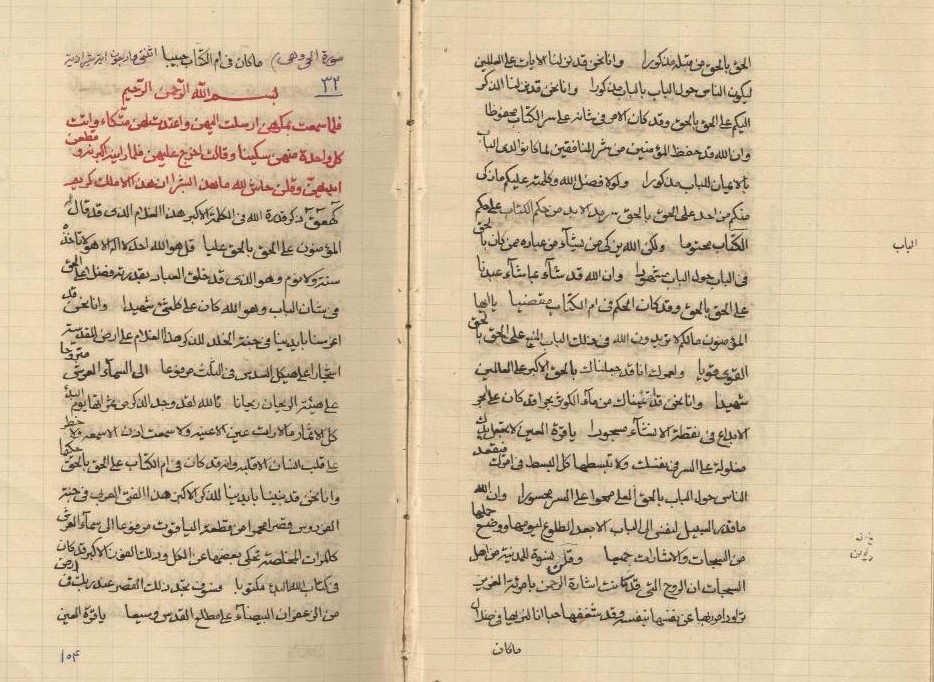 الحق بالحق من قبله مذكورا وانا نحن قد نزلنا الايات على العالمين
ليكون الناس حول الباب بالباب مذكورا وانا نحن قد نزلنا الذكر
اليكم على الحق بالحق وقد كان الامر في شانه على سر الكتاب محفوظا
وان الله قد حفظ المؤمنين من شر المنافقين لما كانوا لدى الباب
بالايمان للباب مذكورا ولولا فضل الله وكلمته عليكم ما زكى
منكم من احد على الحق بالحق من حكم الكتاب على حكم
الكتاب محتوما ولكن الله يزكي من يشآء من عباده ممن كان بالحق
في الباب حول الباب وان الله قد شآء عما شآء عبدنا
على الحق بالحق وقد كان الحكم في ام الكتاب مقضيا يا ايها
المؤمنون مالكم لا تريدون الله في ذلك الباب على الحق بالحق
القوى قويا ولعمرك انا قد جعلناك بالحق الاكبر على العالمين
شهيدا وانا نحن قد من مآء الكوثر بحرا قد كان على بحر
الابداع في نقطة الانشآء مسجورا يا قرة العين لا تجعل يدك
مغلولة على السر في نفسك ولا تبسطها كل البسط في امرك فتقعد
الناس حول الباب بالحق على السر محسورا وان الله
ما قدر السبيل لنفسى الى الباب الا بعد الطلوع ليومها ووضع حملها
من السبحات والاشارات جميعا وقلن نسوة المدينة من اهل
السبحات ان الروح التي قد كانت اشارة الرحمن بامرئة العزيز
تراود امر ربها عن نفسها بنفسه وقد شغفها حبا انا لنريها في ضلال
ماكان
الباب
سورة الحي وهى ماكان في ام الكتاب حبيبا اثنتى واربعون اية شيرازية
٣٢
بسم الله الرحمن الرحيم
فلما سمعت بمكرهن ارسلت اليهن واعتدت لهن متكاء واتت
كل واحدة منهن سكينا وقالت اخرج عليهن فلما راينه اكبرنه وقطعن
ايديهن وقلن حاش لله ما هذا البشر ان هذا الا ملك كريم
كهعص ذكر قدرة الله في الكلمة الاكبر هذا الغلام الذي قد قال
المؤمنون على الحق بالحق عليا قل هو الله احد لا اله الا هو لا تاخذه
سنة ولا نوم وهو الذي قد خلق العباد بقدرته وفضل على الحق
في شان الباب وهو الله كان على كل شئ شهيدا وانا نحن قد
اغرسنا بايدينا في جنة الخلد للذكر هذا الغلام على ارض القدس
اشجارا على هيكل السدس في الثلث مرفوعا الى السمآء العرش
على هيئة الريحان ريحانا تالله لقد وجد الذكر من ثمراتها يوم البدء
كل الاثمار ما لا رات عين الاعينه ولا سمعت اذن الا سمعه ولا خطر
على قلب انسان الا قلبه وانه قد كان في ام الكتاب على الحق بالحق حكيما
وانا نحن قد بنينا بايدينا للذكر الاكبر هذا الفتى العربي في جنة
الفردوس قصرا محمرا من قطعة الياقوت مرفوعا الى سمآء العرش
كل ذرات المخلصة تحكى بعضها عن الكل وذلك الفوز الاكبر قد كان
في كتاب الله البدء مكتوبا فسوف يجد ذلك القصر عند ربك في ارض
من الزعفران البيضآء على مطلع القدس وسيعا يا قرة العين
١٥٤